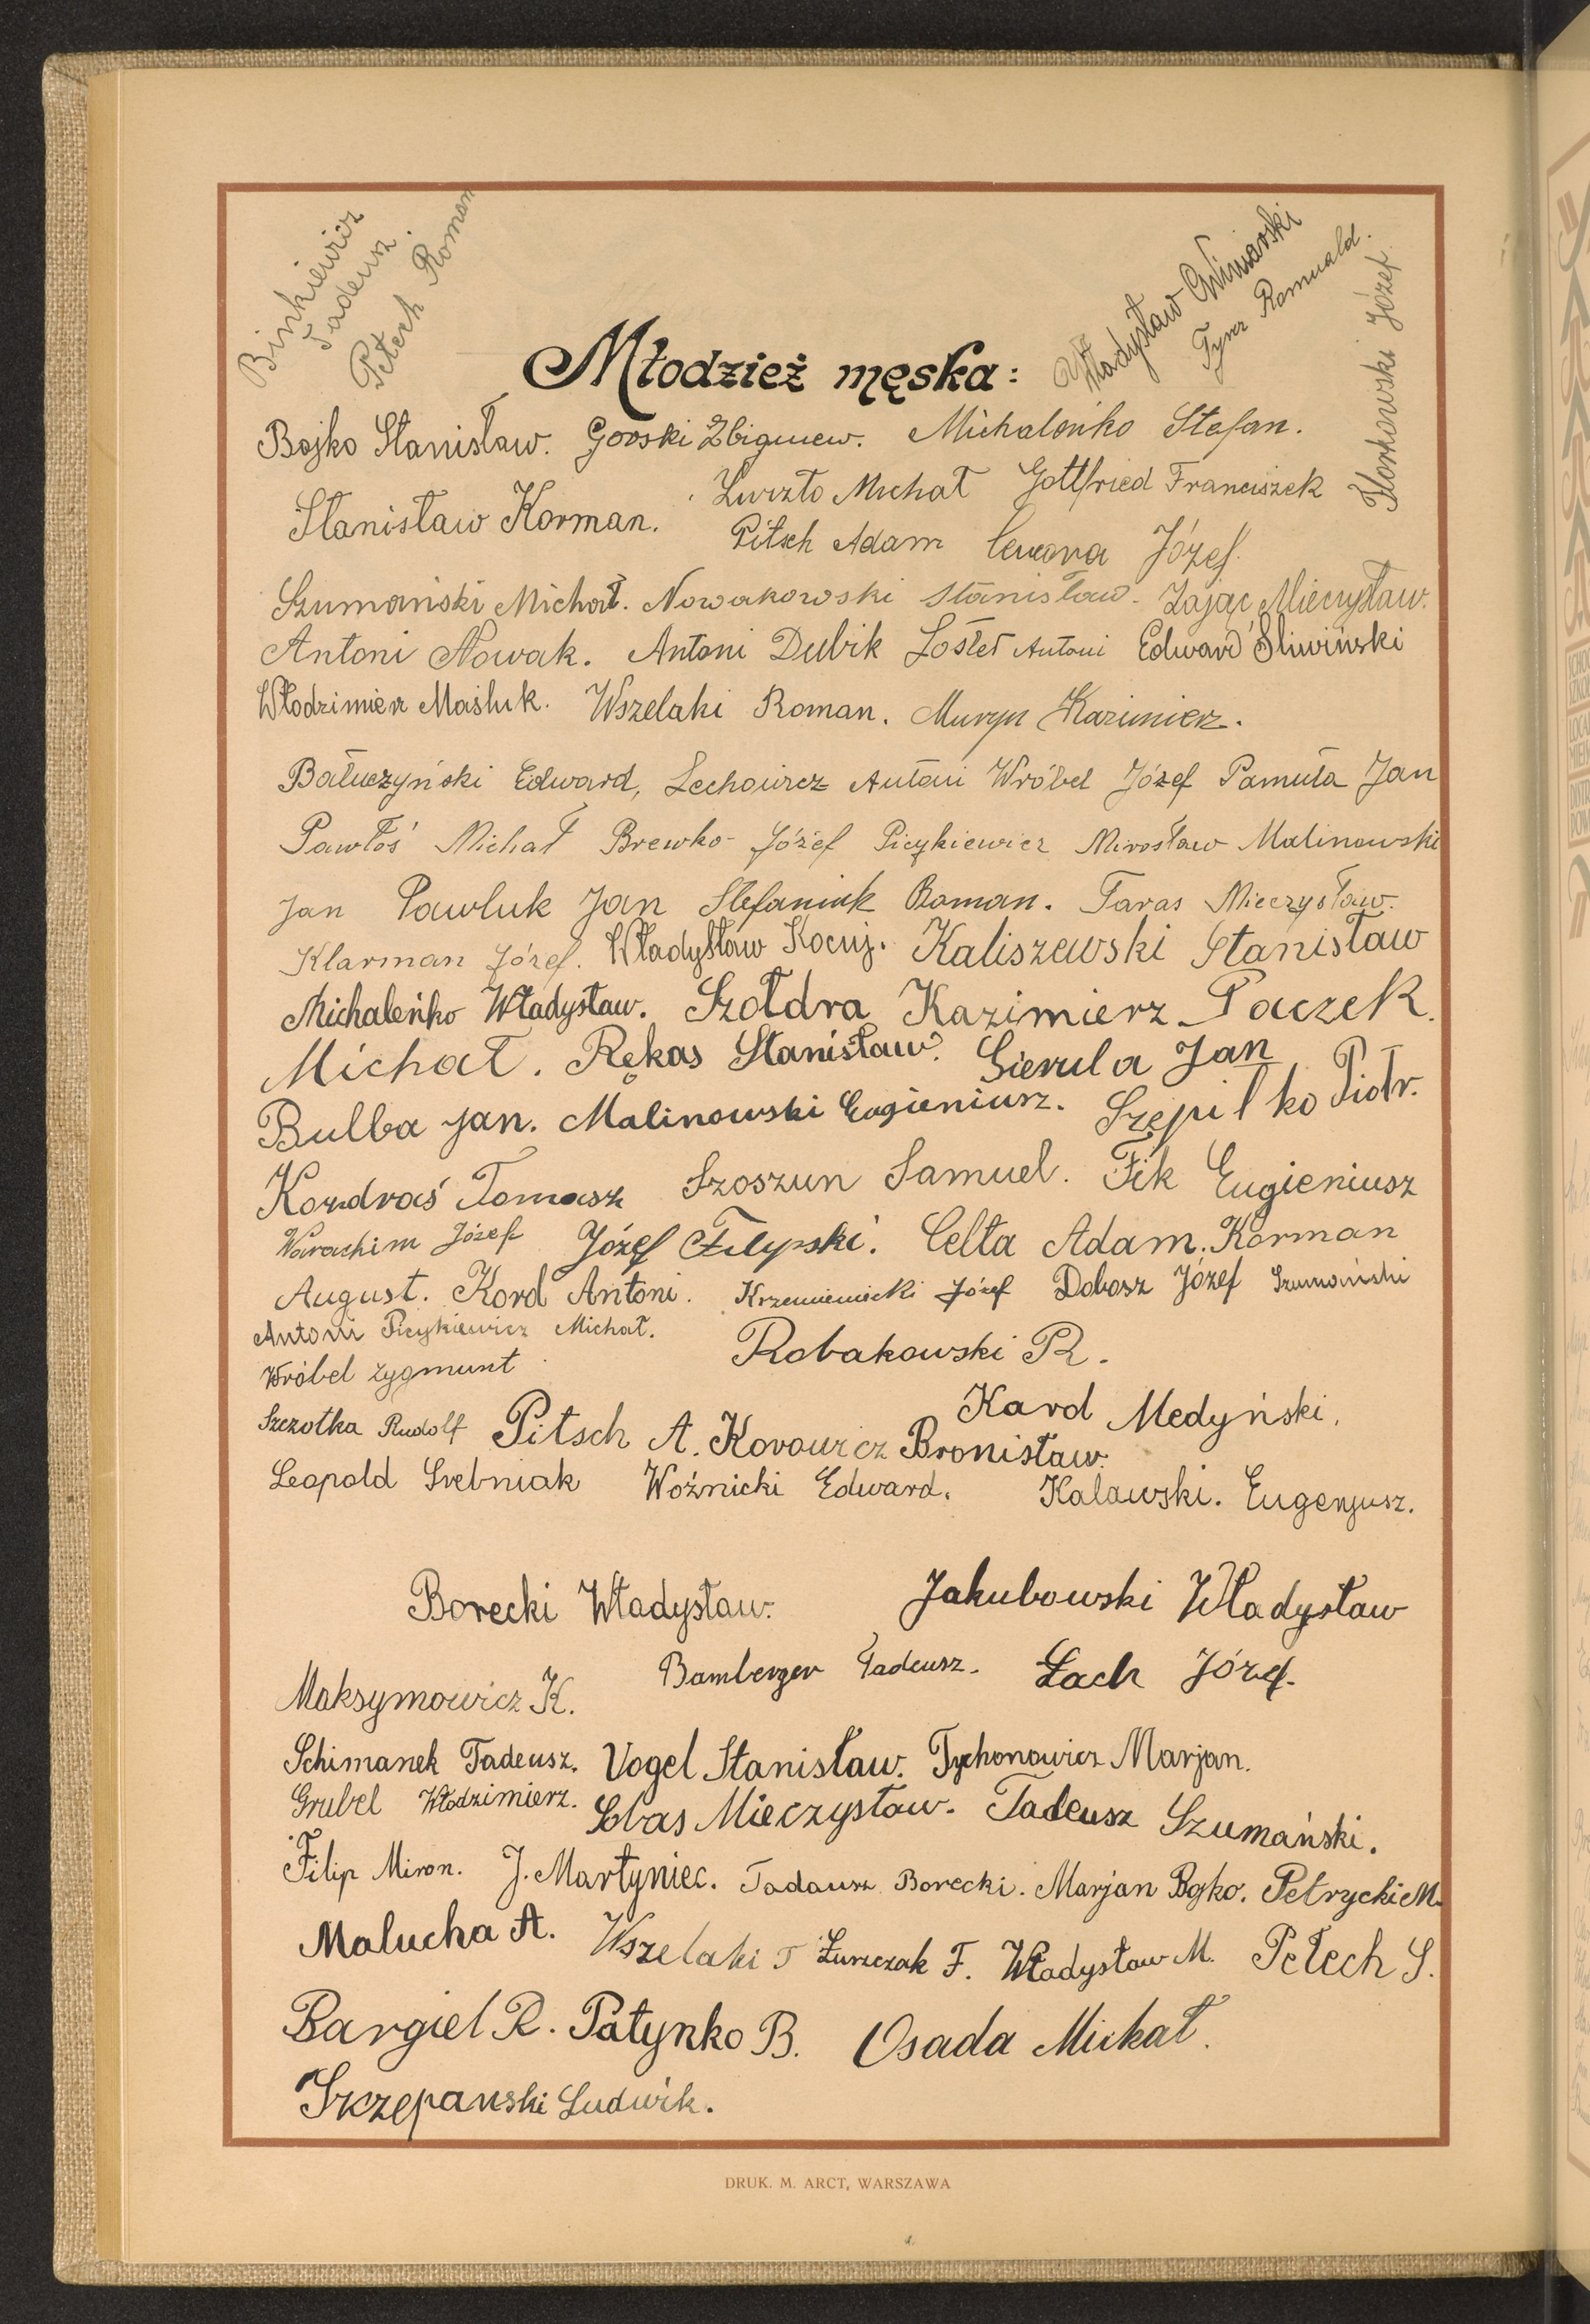 Binkiewicz
Tadeusz.
Petech Roman
Władysław Winiarski
Tyner Romuald.
Józef
Młodzież męska:
Bojko Stanisław. Gorski Zbigniew. Michaleńko Stefan.
Stanisław Korman. Michał Gottfried Franciszek
Pitsch Adam Józef.
Szumański Michał. Nowakowski Stanisław. Zając Mieczysław.
Antoni Nowak. Antoni Dubik Antoni Edward Śliwiński
Włodzimierz Maśluk. Wszelaki Roman. Muryn Kazimierz.
Bałuczyński Edward, Lechowicz Antoni Wróbel Józef Pamuła Jan
Pawłoś Michał Brewko Józef Picykiewicz Mirosław Malinowski
Jan Pawluk Jan Stefaniuk Roman. Taras Mieczysław.
Klarman Józef. Władysław Kocuj. Kaliszewski Stanisław
Michaleńko Władysław. Szołdra Kazimierz Paczek
Michał. Rękas Stanisław. Gierula Jan
Bulba Jan. Malinowski Eugieniusz. Szepilko Piotr.
Kozdraś Tomasz Szoszun Samuel. Fik Eugieniusz
Warachim Józef Józef Filypski. Celta Adam. Korman
August. Kord Antoni. Krzemieniecki Józef Dobosz Józef Szumański
Antoni Picykiewicz Michał.
Robakowski R.
Wróbel Zygmunt
Kard Medyński.
Szczotka Rudolf Pitsch A. Korowicz Bronisław.
Leopold Srebniak Woźnicki Edward. Kalawski. Eugenjusz.
Borecki Władysław. Jakubowski Władysław
Maksymowicz K. Bamberger Tadeusz. Łach Józef.
Schimanek Tadeusz. Vogel Stanisław. Tychonowicz Marjan.
Grubel Włodzimierz. Mieczysław. Tadeusz Szumański.
Filip Miron. J. Martyniec. Tadausz Borecki. Marjan Bojko. Petrycki M.
Malucha A. Wszelaki T Żurczak F. Władysław M. Petech S.
Bargiel R. Patynko B. Osada Michał.
Szczepanski Ludwik.
DRUK. M. ARCT, WARSZAWA